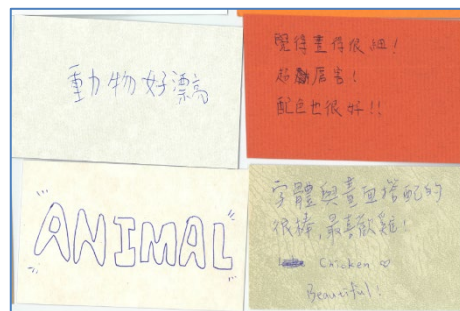 動物好漂亮
覺得畫得很細!
超厲害!
配色也很好!!
ANIMAL
字體與畫面搭配的
很棒,最喜歡雞!
Chicken ♡
Beautiful!